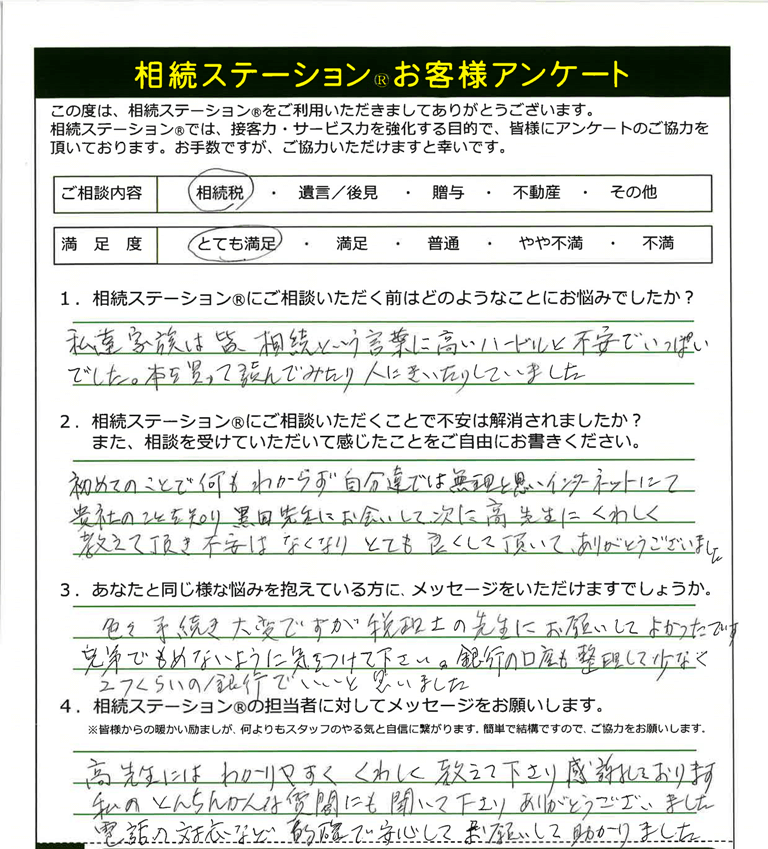 相続ステーション®お客様アンケート
この度は、相続ステーション®をご利用いただきましてありがとうございます。
相続ステーション®では、接客力・サービス力を強化する目的で、皆様にアンケートのご協力を
頂いております。お手数ですが、ご協力いただけますと幸いです。
ご相談内容 相続税 ・ 遺言／後見 ・ 贈与 ・ 不動産 ・ その他
満 足 度 とても満足 ・ 満足 ・ 普通 ・ やや不満 ・ 不満
１．相続ステーション®にご相談いただく前はどのようなことにお悩みでしたか？
私達家族は皆、相続という言葉に高いハードルと不安でいっぱい
でした。本を買って読んでみたり人にきいたりしていました
２．相続ステーション®にご相談いただくことで不安は解消されましたか？
また、相談を受けていただいて感じたことをご自由にお書きください。
初めてのことで何もわからず自分達では無理と思いインターネットにて
貴社のことを知り黒田先生にお会いして次に高先生にくわしく
教えて頂き不安はなくなりとても良くして頂いて、ありがとうございました
３．あなたと同じ様な悩みを抱えている方に、メッセージをいただけますでしょうか。
色々手続き大変ですが税理士の先生にお願いしてよかったです
兄弟でもめないように気をつけて下さい。銀行の口座も整理して少なく
2つくらいの銀行でいいと思いました
４．相続ステーション®の担当者に対してメッセージをお願いします。
※皆様からの暖かい励ましが、何よりもスタッフのやる気と自信に繋がります。簡単で結構ですので、ご協力をお願いします。
高先生にはわかりやすくくわしく教えて下さり感謝しております
私のとんちんかんな質問にも聞いて下さりありがとうございました
電話の対応など的確で安心してお願いして助かりました